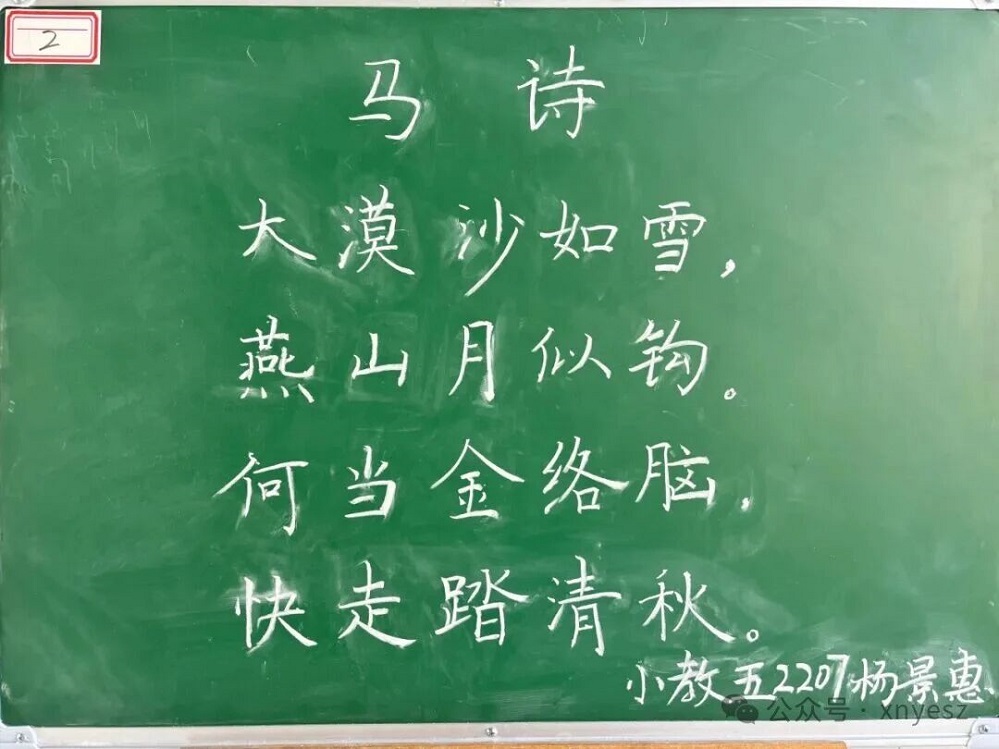 2
马 诗
大漠沙如雪，
燕山月似钩。
何当金络脑，
快走踏清秋。
小教五2207杨景惠
公众号 · xnyesz